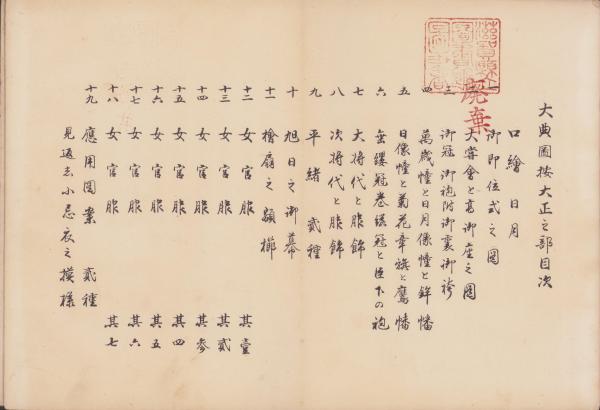 大典圖按大正之部目次
口繪 日月
一 御即位式之圖
二 大嘗會と高御座之圖
三 御冠御袍附御裏御袴
四 萬歳幢と日月像幢と鉾幡
五 日像幢と菊花章旗と鷹幡
六 垂纓冠卷纓冠と臣下の袍
七 大将代と胀錦
八 次将代と胀錦
九 平緒 貳種
十 旭日之御幕
十一 檜扇之顕櫛
十二 女官服 其壹
十三 女官服 其貳
十四 女官服 其参
十五 女官服 其四
十六 女官服 其五
十七 女官服 其六
十八 女官服 其七
十九 應用圖案 貳種
見返ㇱ小忌衣之摸様
廢棄